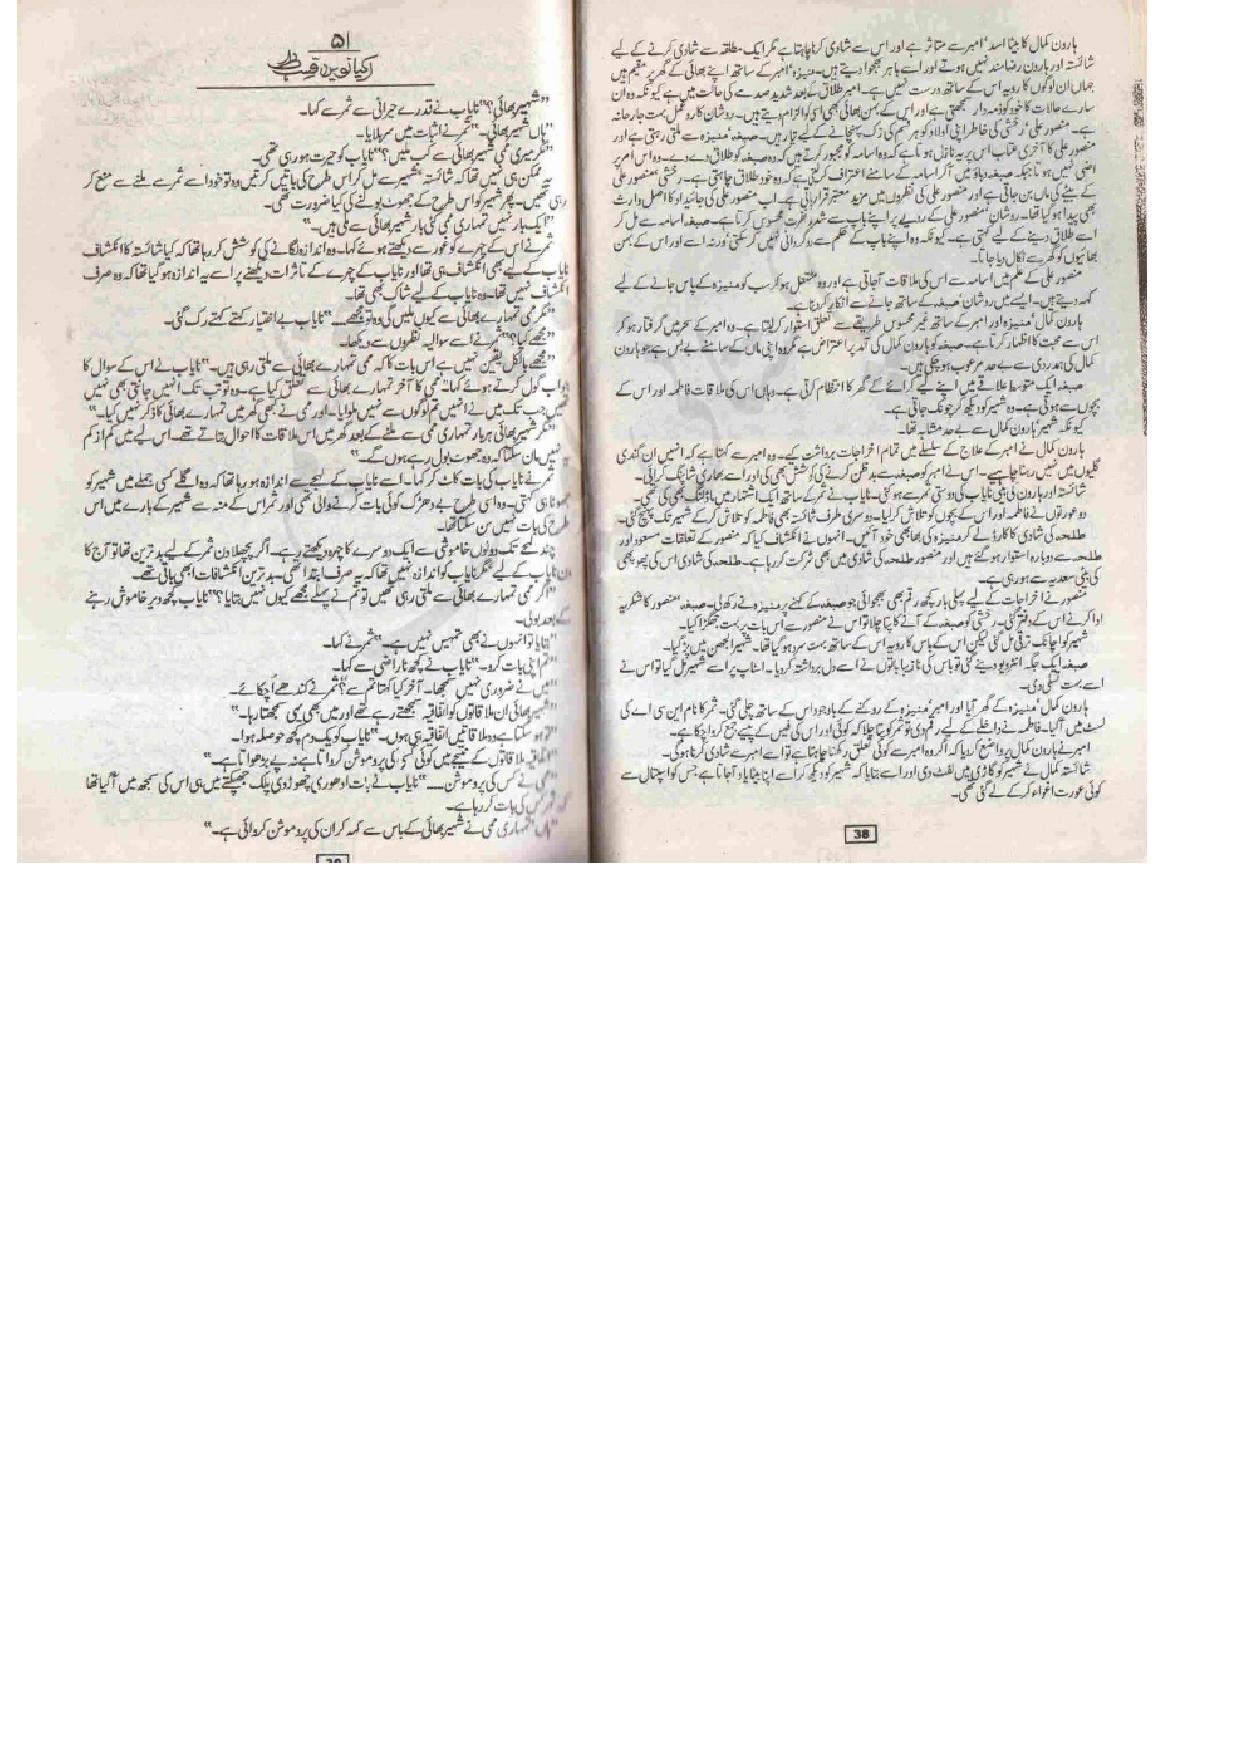 ہارون کمال کا بیٹا اسد، امبر سے متاثر ہے اور اس سے شادی کرنا چاہتا ہے مگر ایک مطلقہ سے شادی کرنے کے لیے
شائستہ اور ہارون رضامند نہیں ہوتے اور اسے باہر بھجوا دیتے ہیں۔ منیزہ، امبر کے ساتھ اپنے بھائی کے گھر پر مقیم ہیں
جہاں ان لوگوں کا رویہ اس کے ساتھ درست نہیں ہے۔ امبر طلاق کے بعد شدید صدمے کی حالت میں ہے کیونکہ وہ ان
سارے حالات کا خود کو ذمہ دار سمجھتی ہے اور اس کے بہن بھائی بھی اسی کو الزام دیتے ہیں۔ روشان کا رد عمل بہت جارحانہ
ہے۔ منصور علی، رخشی کی خاطر اپنی اولاد کو ہر قسم کی زک پہنچانے کے لیے تیار ہیں۔ صبغہ، منیزہ سے ملتی رہتی ہے اور
منصور علی کا آخری عتاب اس پر یہ نازل ہوتا ہے کہ وہ اسامہ کو مجبور کرتے ہیں کہ وہ صبغہ کو طلاق دے دے۔ وہ اس امر پر
راضی نہیں ہوتا جبکہ صبغہ دباؤ میں آ کر اسامہ کے سامنے اعتراف کرتی ہے کہ وہ خود طلاق چاہتی ہے۔ رخشی، منصور علی
کے بیٹے کی ماں بن جاتی ہے اور منصور علی کی نظروں میں مزید معتبر قرار پاتی ہے۔ اب منصور علی کی جائیداد کا اصل وارث
بھی پیدا ہو گیا تھا۔ روشان، منصور علی کے رویے پر اپنے باپ سے شدید نفرت محسوس کرتا ہے۔ صبغہ اسامہ سے مل کر
اسے طلاق دینے کے لیے کہتی ہے۔ کیونکہ وہ اپنے باپ کے حکم سے روگردانی نہیں کر سکتی، ورنہ اسے اور اس کے بہن
بھائیوں کو گھر سے نکال دیا جاتا۔
منصور علی کے علم میں اسامہ سے اس کی ملاقات آ جاتی ہے اور وہ مشتعل ہو کر سب کو منیزہ کے پاس جانے کے لیے
کہہ دیتے ہیں۔ ایسے میں روشان، صبغہ کے ساتھ جانے سے انکار کر دیتا ہے۔
ہارون کمال، منیزہ اور امبر کے ساتھ غیر محسوس طریقے سے تعلق استوار کر لیتا ہے۔ وہ امبر کے سحر میں گرفتار ہو کر
اس سے محبت کا اظہار کرتا ہے۔ صبغہ کو ہارون کمال کی آمد پر اعتراض ہے مگر وہ اپنی ماں کے سامنے بے بس ہے جو ہارون
کمال کی ہمدردی سے بے حد مرعوب ہو چکی ہیں۔
صبغہ ایک متوسط علاقے میں اپنے لیے کرائے کے گھر کا انتظام کرتی ہے۔ وہاں اس کی ملاقات فاطمہ اور اس کے
بچوں سے ہوتی ہے۔ وہ شہیر کو دیکھ کر چونک جاتی ہے۔
کیونکہ شہیر، ہارون کمال سے بے حد مشابہ تھا۔
ہارون کمال نے امبر کے علاج کے سلسلے میں تمام اخراجات برداشت کیے۔ وہ امبر سے کہتا ہے کہ انہیں ان گندی
گلیوں میں نہیں رہنا چاہیے۔ اس نے امبر کو صبغہ سے بدظن کرنے کی کوشش بھی کی اور اسے بھاری شاپنگ کرائی۔
شائستہ اور ہارون کی بیٹی نایاب کی دوستی ثمر سے ہو گئی۔ نایاب نے ثمر کے ساتھ ایک اشتہار میں ماڈلنگ بھی کی تھی۔
دو عورتوں نے فاطمہ اور اس کے بچوں کو تلاش کر لیا۔ دوسری طرف شائستہ بھی فاطمہ کو تلاش کر کے شہیر تک پہنچ گئی۔
طلحہ کی شادی کا کارڈ لے کر منیزہ کی بھابھی خود آئیں۔ انہوں نے انکشاف کیا کہ منصور کے تعلقات مسعود اور
طلحہ سے دوبارہ استوار ہو گئے ہیں اور منصور طلحہ کی شادی میں بھی شرکت کر رہا ہے۔ طلحہ کی شادی اس کی پھوپھی
کی بیٹی سعدیہ سے ہو رہی ہے۔
منصور نے اخراجات کے لیے پہلی بار کچھ رقم بھی بھجوائی جو صبغہ کے کہنے پر منیزہ نے رکھ لی۔ صبغہ، منصور کا شکریہ
ادا کرنے اس کے دفتر گئی۔ رخشی کو صبغہ کے آنے کا پتا چلا تو اس نے منصور سے اس بات پر بہت جھگڑا کیا۔
شہیر کو اچانک ترقی مل گئی لیکن اس کے باس کا رویہ اس کے ساتھ بہت سرد ہو گیا تھا۔ شہیر الجھن میں پڑ گیا۔
صبغہ ایک جگہ انٹرویو دینے گئی تو باس کی نازیبا باتوں نے اسے دل برداشتہ کر دیا۔ اسٹاپ پر اسے شہیر مل گیا تو اس نے
اسے بہت تسلی دی۔
ہارون کمال، منیزہ کے گھر آیا اور امبر، منیزہ کے روکنے کے باوجود اس کے ساتھ چلی گئی۔ ثمر کا نام این سی اے کی
لسٹ میں آ گیا۔ فاطمہ نے داخلے کے لیے رقم دی تو ثمر کو پتا چلا کہ کوئی اور اس کی فیس کے پیسے جمع کروا چکا ہے۔
امبر نے ہارون کمال پر واضح کر دیا کہ اگر وہ امبر سے کوئی تعلق رکھنا چاہتا ہے تو اسے امبر سے شادی کرنا ہوگی۔
شائستہ کمال نے شہیر کو گاڑی میں لفٹ دی اور اسے بتایا کہ شہیر کو دیکھ کر اسے اپنا بیٹا یاد آ جاتا ہے، جس کو اسپتال سے
کوئی عورت اغواء کر کے لے گئی تھی۔
38
۵۱
اکیانویں قسط
"شہیر بھائی؟" نایاب نے قدرے حیرانی سے ثمر سے کہا۔
"ہاں شہیر بھائی۔" ثمر نے اثبات میں سر ہلایا۔
"مگر میری ممی شہیر بھائی سے کب ملیں؟" نایاب کو حیرت ہو رہی تھی۔
یہ ممکن ہی نہیں تھا کہ شائستہ، شہیر سے مل کر اس طرح کی باتیں کرتیں وہ تو خود اسے ثمر سے ملنے سے منع کر
رہی تھیں۔ پھر شہیر کو اس طرح کے جھوٹ بولنے کی کیا ضرورت تھی۔
"ایک بار نہیں تمہاری ممی کئی بار شہیر بھائی سے ملی ہیں۔"
ثمر نے اس کے چہرے کو غور سے دیکھتے ہوئے کہا۔ وہ اندازہ لگانے کی کوشش کر رہا تھا کہ کیا شائستہ کا انکشاف
نایاب کے لیے بھی انکشاف ہی تھا اور نایاب کے چہرے کے تاثرات دیکھنے پر اسے یہ اندازہ ہو گیا تھا کہ وہ صرف
انکشاف نہیں تھا۔ وہ نایاب کے لیے شاک بھی تھا۔
"مگر ممی تمہارے بھائی سے کیوں ملیں گی وہ تو مجھے ...." نایاب بے اختیار کہتے کہتے رک گئی۔
"مجھے کیا؟" ثمر نے اسے سوالیہ نظروں سے دیکھا۔
"مجھے بالکل یقین نہیں ہے اس بات کا کہ ممی تمہارے بھائی سے ملتی رہی ہیں۔" نایاب نے اس کے سوال کا
جواب گول کرتے ہوئے کہا۔ "ممی کا آخر تمہارے بھائی سے تعلق کیا ہے۔ وہ تو تب تک انہیں جانتی بھی نہیں
تھیں جب تک میں نے انہیں تم لوگوں سے نہیں ملوایا۔ اور ممی نے کبھی گھر میں تمہارے بھائی کا ذکر نہیں کیا۔"
"مگر شہیر بھائی ہر بار تمہاری ممی سے ملنے کے بعد گھر میں اس ملاقات کا احوال بتاتے تھے۔ اس لیے میں کم از کم
نہیں مان سکتا کہ وہ جھوٹ بول رہے ہوں گے۔"
ثمر نے نایاب کی بات کاٹ کر کہا۔ اسے نایاب کے لہجے سے اندازہ ہو رہا تھا کہ وہ اگلے کسی جملے میں شہیر کو
جھوٹا ہی کہتی۔ وہ اسی طرح بے دھڑک کوئی بات کرنے والی تھی اور ثمر اس کے منہ سے شہیر کے بارے میں اس
طرح کی بات نہیں سن سکتا تھا۔
چند لمحے تک دونوں خاموشی سے ایک دوسرے کا چہرہ دیکھتے رہے۔ اگر پچھلا دن ثمر کے لیے بدترین تھا تو آج کا
دن نایاب کے لیے، مگر نایاب کو اندازہ نہیں تھا کہ یہ صرف ابتدا تھی۔ بدترین انکشافات ابھی باقی تھے۔
"اگر ممی تمہارے بھائی سے ملتی رہی تھیں تو تم نے پہلے مجھے کیوں نہیں بتایا؟" نایاب کچھ دیر خاموش رہنے
کے بعد بولی۔
"بتایا تو انہوں نے بھی تمہیں نہیں ہے۔" ثمر نے کہا۔
"تم اپنی بات کرو۔" نایاب نے کچھ ناراضی سے کہا۔
"میں نے ضروری نہیں سمجھا۔ آخر کیا کہتا تم سے؟" ثمر نے کندھے اچکائے۔
"شہیر بھائی ان ملاقاتوں کو اتفاقیہ سمجھتے رہے تھے اور میں بھی یہی سمجھتا رہا۔"
"تو ہو سکتا ہے وہ ملاقاتیں اتفاقیہ ہی ہوں۔" نایاب کو یک دم کچھ حوصلہ ہوا۔
"اتفاقیہ ملاقاتوں کے نتیجے میں کوئی کسی کی پروموشن کرواتا ہے نہ پے بڑھواتا ہے۔"
"ممی نے کس کی پروموشن ....." نایاب نے بات ادھوری چھوڑ دی پلک جھپکتے میں ہی اس کی سمجھ میں آ گیا تھا
کہ ثمر کس کی بات کر رہا ہے۔
"ہاں تمہاری ممی نے شہیر بھائی کے باس سے کہہ کر ان کی پروموشن کروائی ہے۔"